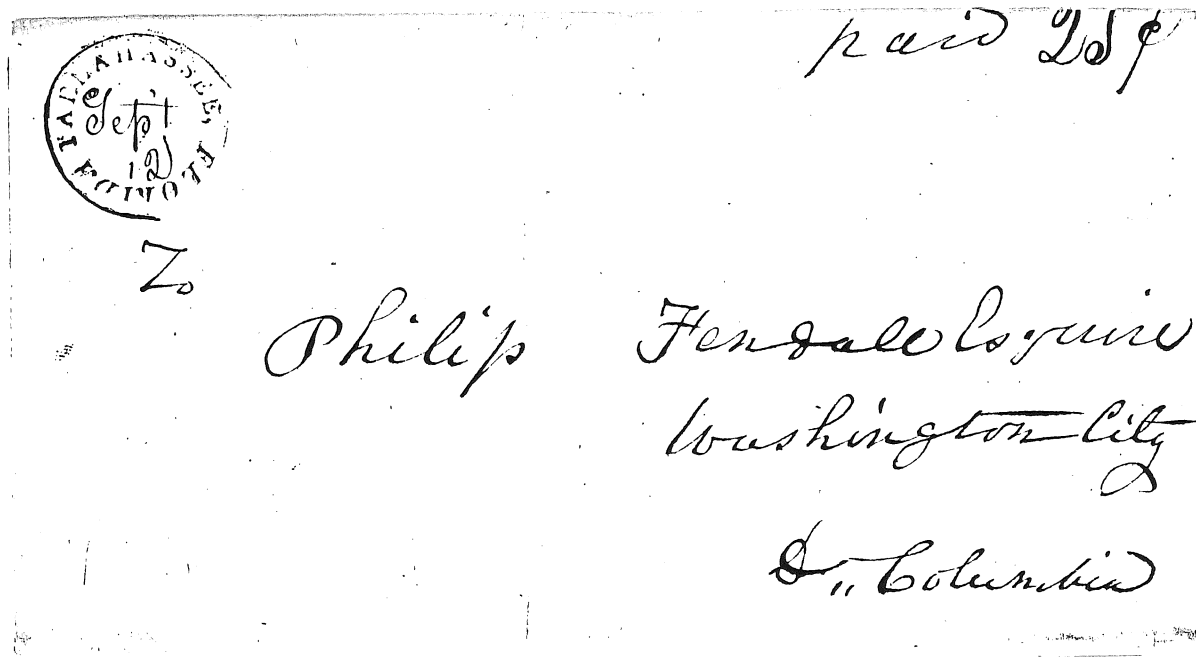 paid 25¢
TALLAHASSEE, FLORIDA
Sept
12
To
Philip Fendall Esquire
Washington City
D,, Columbia